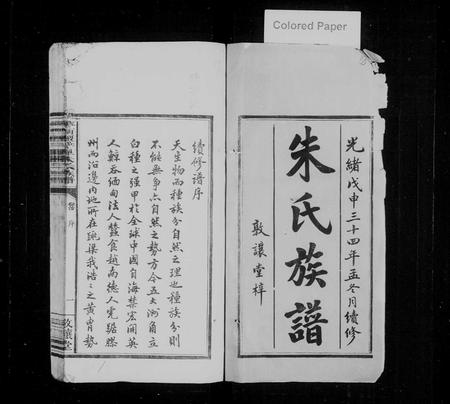 Colored Paper
光緒戊申三十四年孟冬月續修
朱氏族譜
敦讓堂梓
續修譜序
天生物而種族分自然之理也種族分則
不能無爭亦自然之勢方今五大洲角立
白種之强甲於全球中國自海禁宏開英
人鯨吞緬甸法人蠶食越南德人虎踞膠
州而沿邊內地所在跳梁我浩々之黃胄勢
敦讓堂